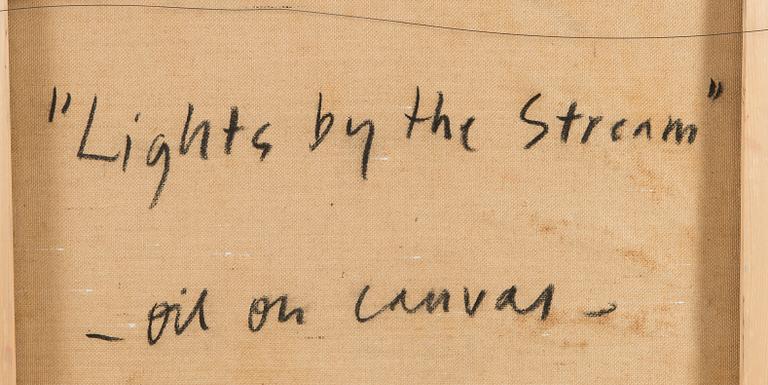 "Lights by the Stream"
- oil on canvas -